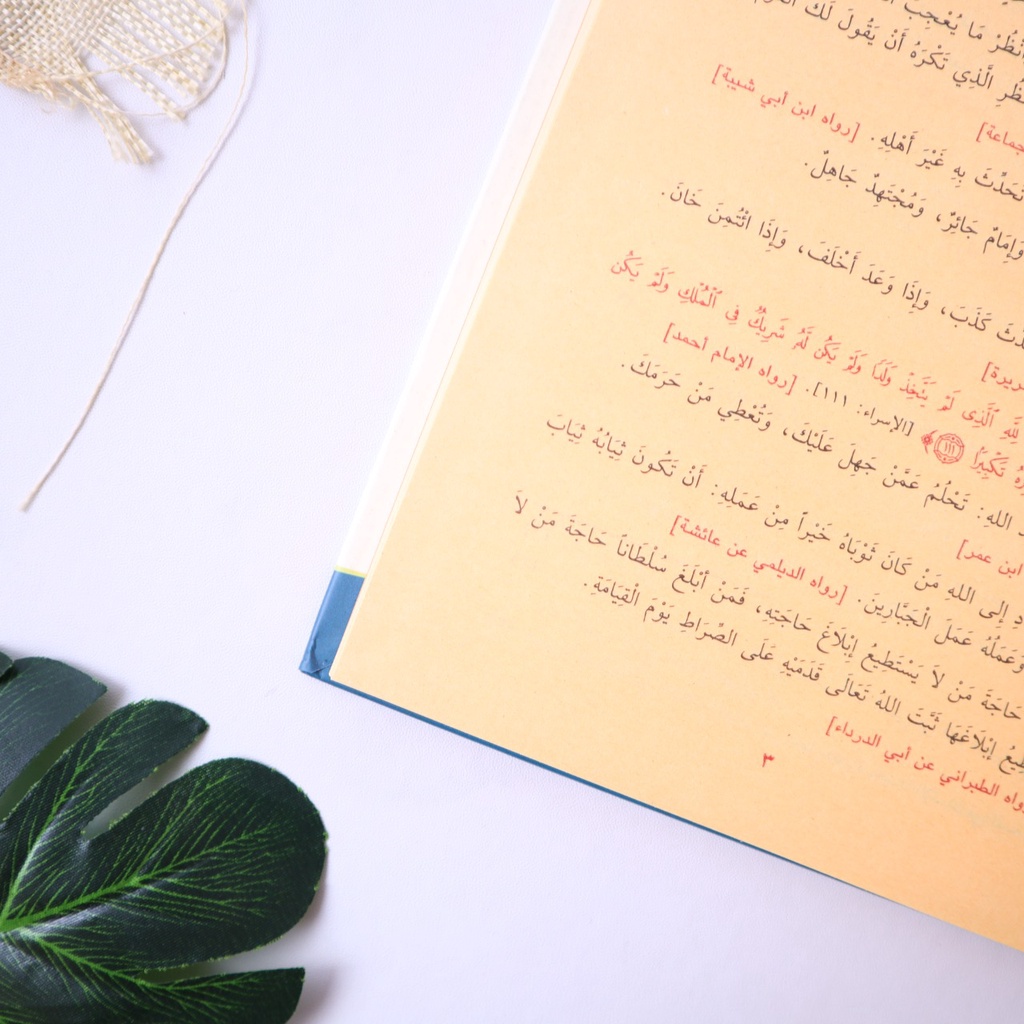 انْظُرْ مَا يُعْجِبُ
الَّذِي تَكْرَهُ أَنْ يَقُولَ لَكَ
[رواه ابن أبي شيبة]
بِهِ غَيْرَ أَهْلِهِ.
وَإِمَامٌ جَائِرٌ، وَمُجْتَهِدٌ جَاهِلٌ.
كَذَبَ، وَإِذَا وَعَدَ أَخْلَفَ، وَإِذَا ائْتُمِنَ خَانَ.
لِلَّهِ ٱلَّذِى لَمْ يَتَّخِذْ وَلَدًا وَلَمْ يَكُن لَّهُۥ شَرِيكٌ فِى ٱلْمُلْكِ وَلَمْ يَكُن
تَكْبِيرًا ١١١﴾ [الإسراء: ١١١]. [رواه الإمام أحمد]
اللهِ: تَحْلُمُ عَمَّنْ جَهِلَ عَلَيْكَ، وَتُعْطِي مَنْ حَرَمَكَ.
ابن عمر]
إِلَى اللهِ مَنْ كَانَ ثَوْبَاهُ خَيْراً مِنْ عَمَلِهِ: أَنْ تَكُونَ ثِيَابُهُ ثِيَابَ
وَعَمَلُهُ عَمَلَ الْجَبَّارِينَ. [رواه الديلمي عن عائشة]
حَاجَةَ مَنْ لاَ يَسْتَطِيعُ إِبْلَاغَ حَاجَتِهِ، فَمَنْ أَبْلَغَ سُلْطَاناً حَاجَةَ مَنْ لاَ
إِبْلَاغَهَا ثَبَّتَ اللهُ تَعَالَى قَدَمَيْهِ عَلَى الصِّرَاطِ يَوْمَ الْقِيَامَةِ.
الطبراني عن أبي الدرداء]
٣